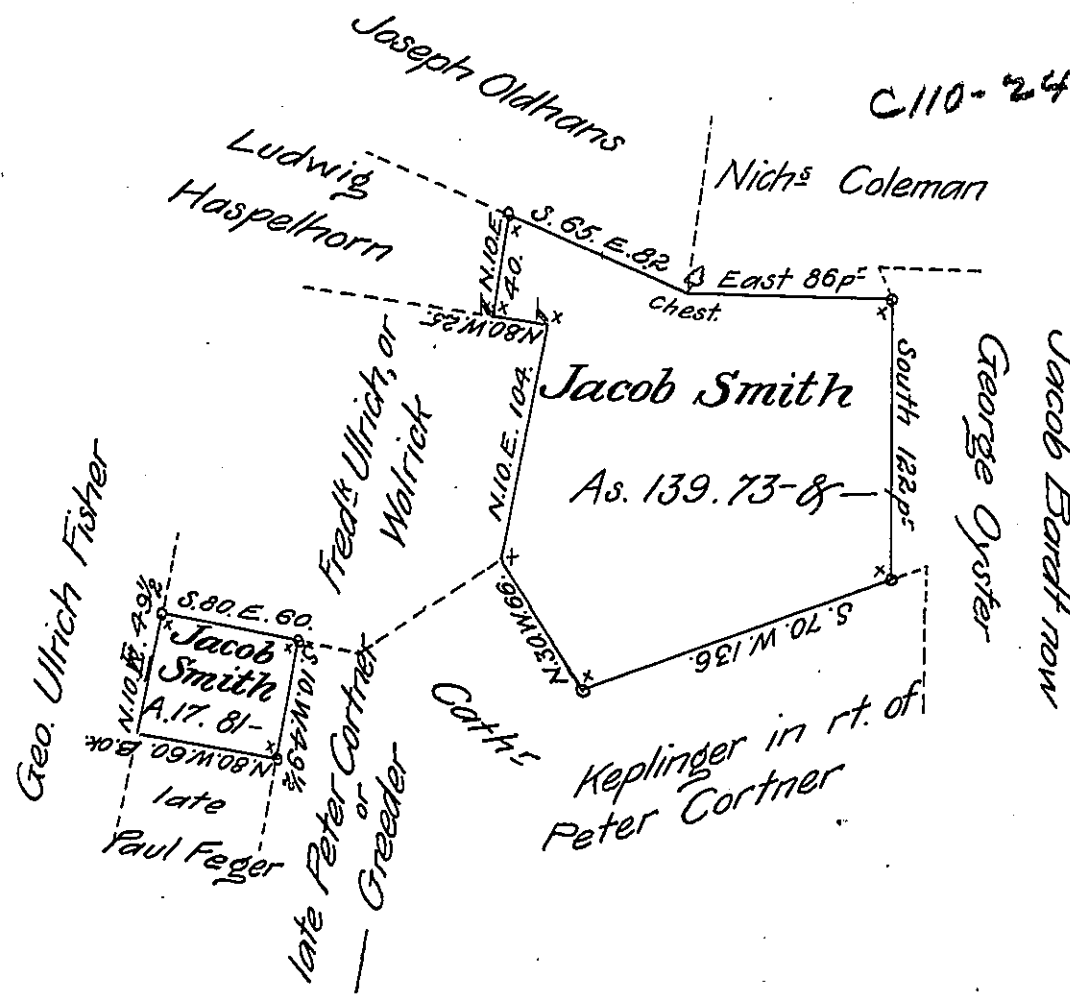 C110-24
Joseph Oldhans
Ludwig
Haspelhorn
Nichs Coleman
N.10.E
40.
S. 65. E. 82
East 86ps
chest.
N.80.W.25.
Jacob Smith
As. 139.73-&
South 122ps
George Oyster
Jacob Bardt now
N.10.E. 104.
Fredk Ulrich, or
Wolrick
N.30.W.66.
S. 70. W. 136.
Geo. Ulrich Fisher
S.80.E. 60.
N.10.E. 49½
Jacob
Smith
A.17. 81-
S.10.W.49½
N.80.W.60. B.ok.
late
Paul Feger
late Peter Cortner
or
Greeder
Cathr
Keplinger in rt. of
Peter Cortner